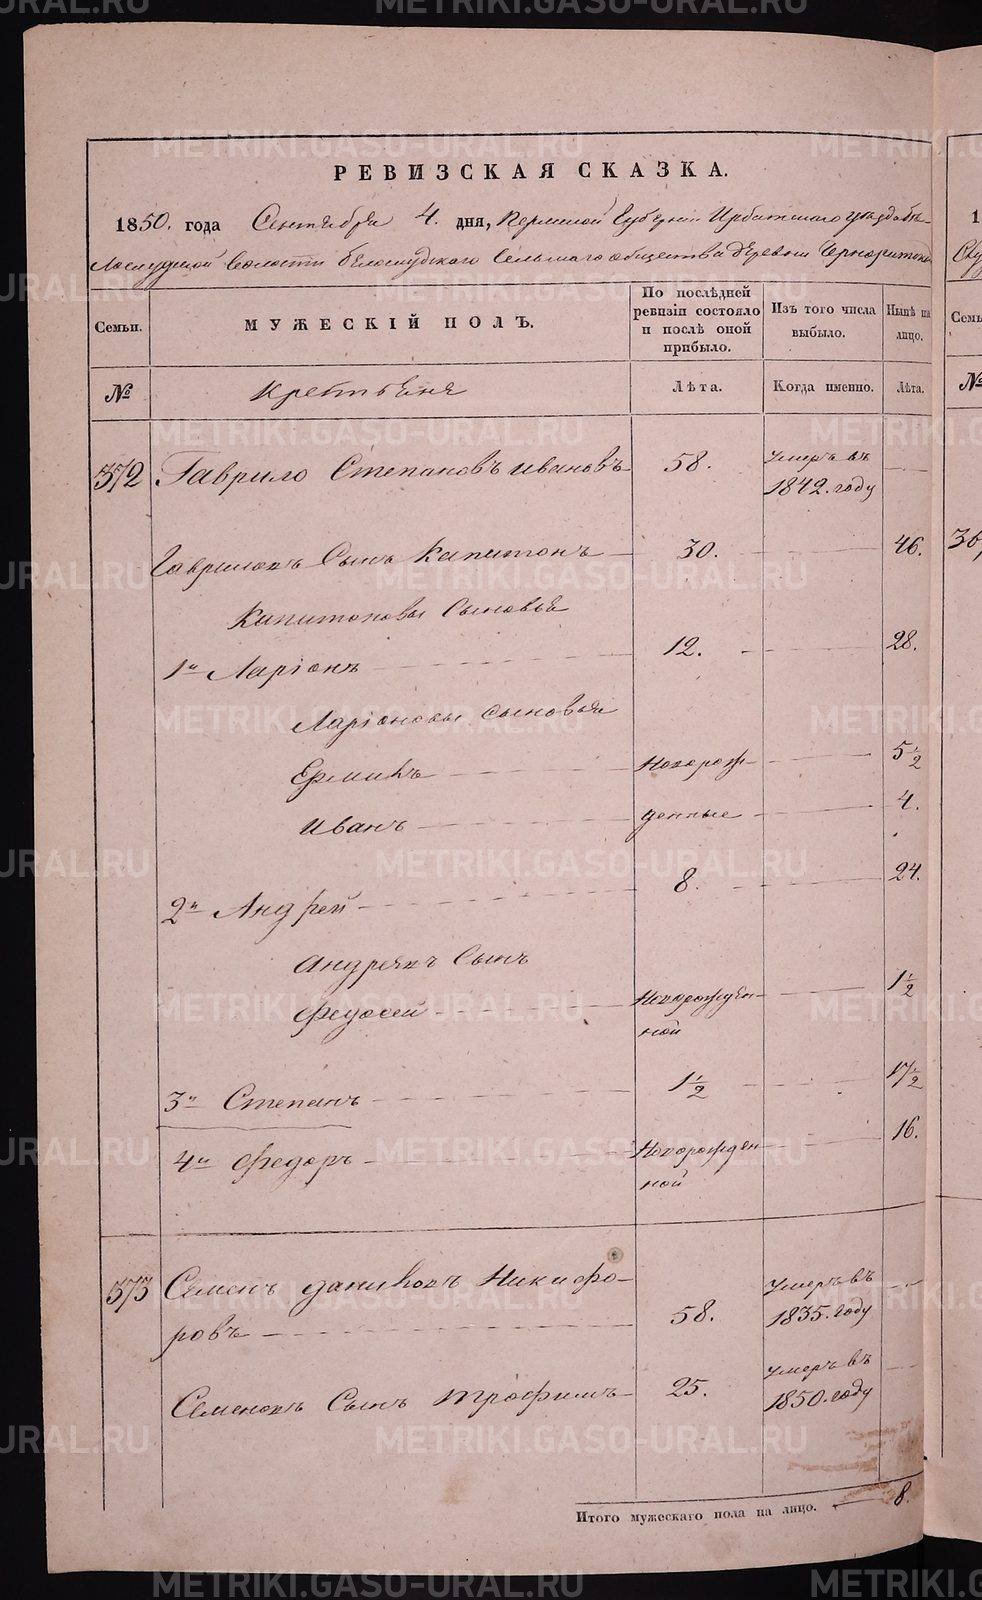 METRIKI.GASO-URAL.RU
РЕВИЗСКАЯ СКАЗКА.
1850. года Сентября 4. дня, Пермской Губернiи Ирбитскаго уѣзда Бѣ-
лослудской Волости Белослудского Сельскаго общества деревни
Семьи.
МУЖЕСКIЙ ПОЛЪ.
По послѣдней ревизiи состояло и послѣ оной прибыло.
Изъ того числа выбыло.
Нынѣ на лицо.
№
Крестьяне
Лѣта.
Когда именно.
Лѣта.
372 Гаврило Степановъ Ивановъ 58. Умеръ въ 1842. году
Гавриловъ Сынъ Капитонъ 30. 46.
Капитоновы Сыновья
1й Ларiонъ 12. 28.
Ларiоновы Сыновья
Ермилъ Новорож- 5½
Иванъ денные 4.
2й Андрей 8. 24.
Андреевъ Сынъ
Федосей Новорожден- 1½
ной
3й Степанъ 1½ 17½
4й Федоръ Новорожден 16.
ной
373 Семенъ Даниловъ Никифо- Умеръ въ
ровъ 58. 1835. году
Семеновъ Сынъ Трофимъ 25. Умеръ въ 1850. году
Итого мужескаго пола на лицо. 8.